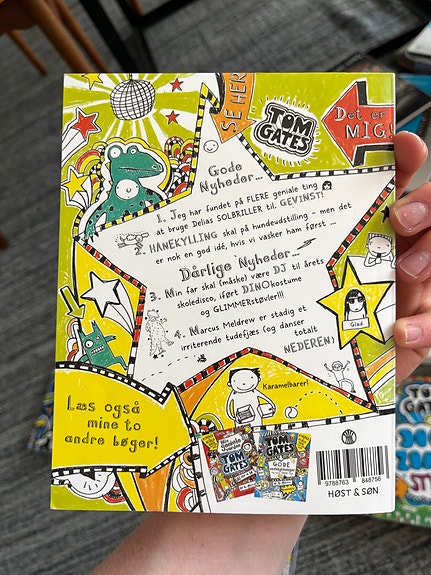 SE HER
TOM
GATES
Det er
MIG!
Gode
Nyheder...
1. Jeg har fundet på FLERE geniale ting
at bruge Delias SOLBRILLER til. GEVINST!
2. HANEKYLLING skal på hundeudstilling - men det
er nok en god idé, hvis vi vasker ham først ...
Dårlige Nyheder...
3. Min far skal (måske) være DJ til årets
skoledisco, iført DINOkostume
og GLIMMERstøvler!!!
4. Marcus Meldrew er stadig et
irriterende tudefjæs (og danser totalt
NEDEREN)
Glad
Karamelbarer!
Læs også
mine to
andre bøger!
TOM
GATES
TOM
GATES
GODE
9788763 848756
HØST & SØN